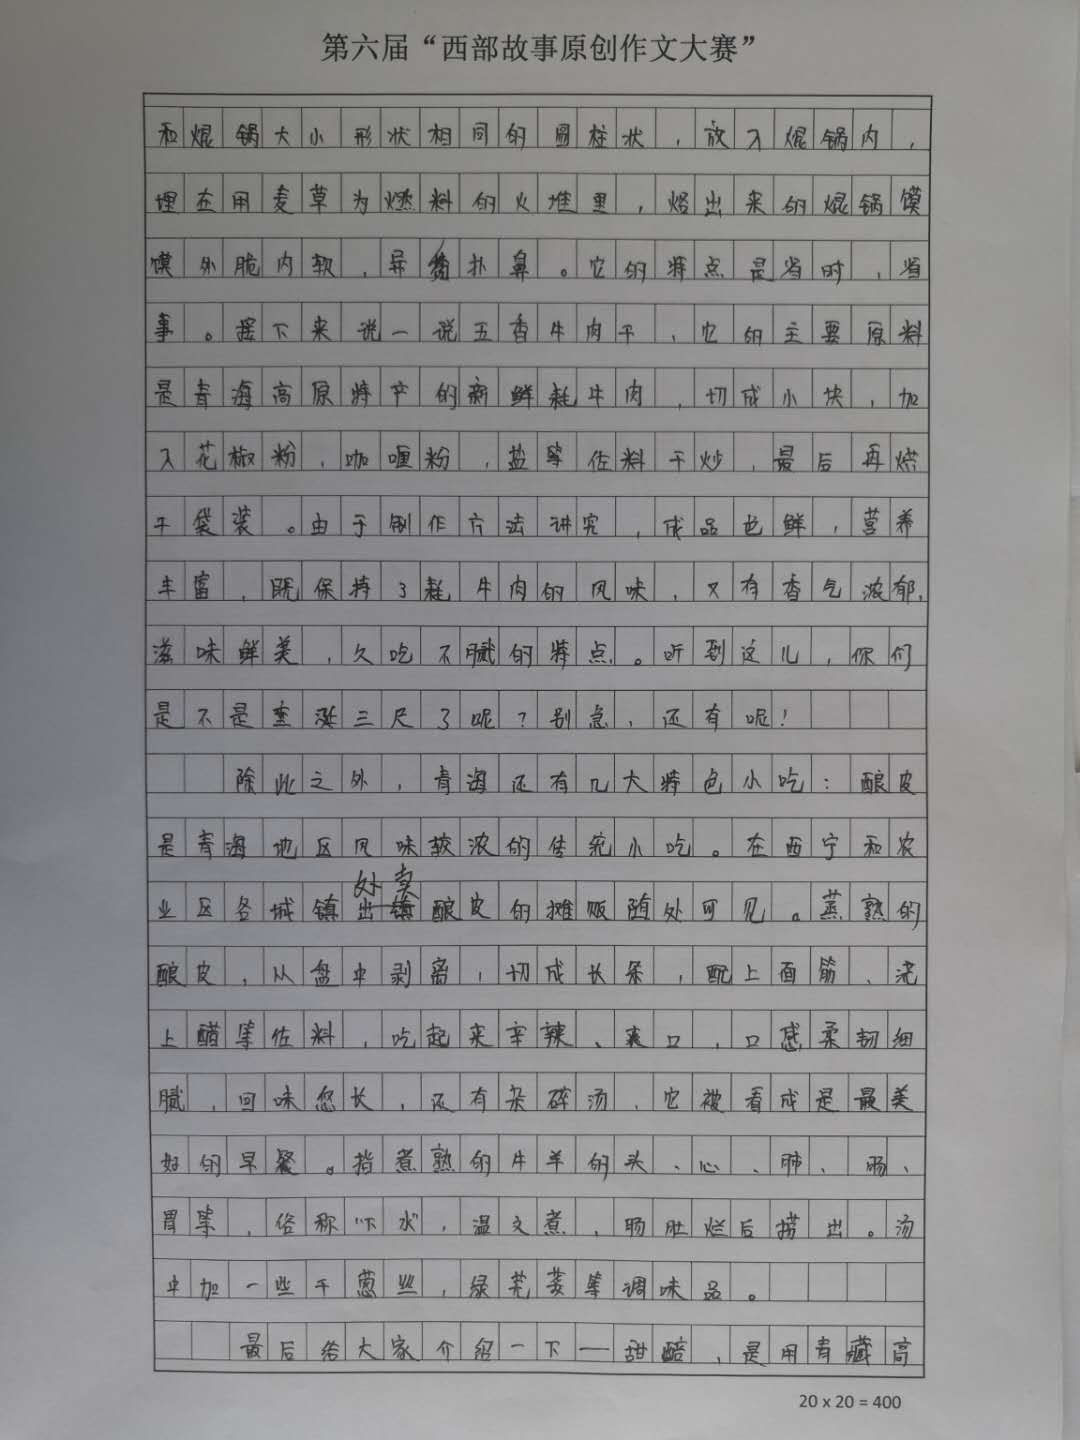 第六届“西部故事原创作文大赛”
和焜锅大小形状相同的圆柱状，放入焜锅内，
埋在用麦草为燃料的火堆里，烙出来的焜锅馍
馍外脆内软，异香扑鼻。它的特点是省时，省
事。接下来说一说五香牛肉干，它的主要原料
是青海高原特产的新鲜牦牛肉，切成小块，加
入花椒粉，咖喱粉，盐等佐料干炒，最后再烘
干袋装。由于制作方法讲究，成品色鲜，营养
丰富，既保持了牦牛肉的风味，又有香气浓郁，
滋味鲜美，久吃不腻的特点。听到这儿，你们
是不是垂涎三尺了呢？别急，还有呢！
除此之外，青海还有几大特色小吃：酿皮
是青海地区风味较浓的传统小吃。在西宁和农
业区各城镇出卖酿皮的摊贩随处可见。蒸熟的
酿皮，从盘中剥离，切成长条，配上面筋、浇
上醋等佐料，吃起来辛辣、爽口，口感柔韧细
腻，回味悠长，还有杂碎汤，它被看成是最美
好的早餐。指煮熟的牛羊的头、心、肺、肠、
胃等，俗称“下水”，温文煮，肠肚烂后捞出。汤
中加一些干葱丝，绿芫荽等调味品。
最后给大家介绍一下——甜醅，是用青藏高
20 x 20 = 400